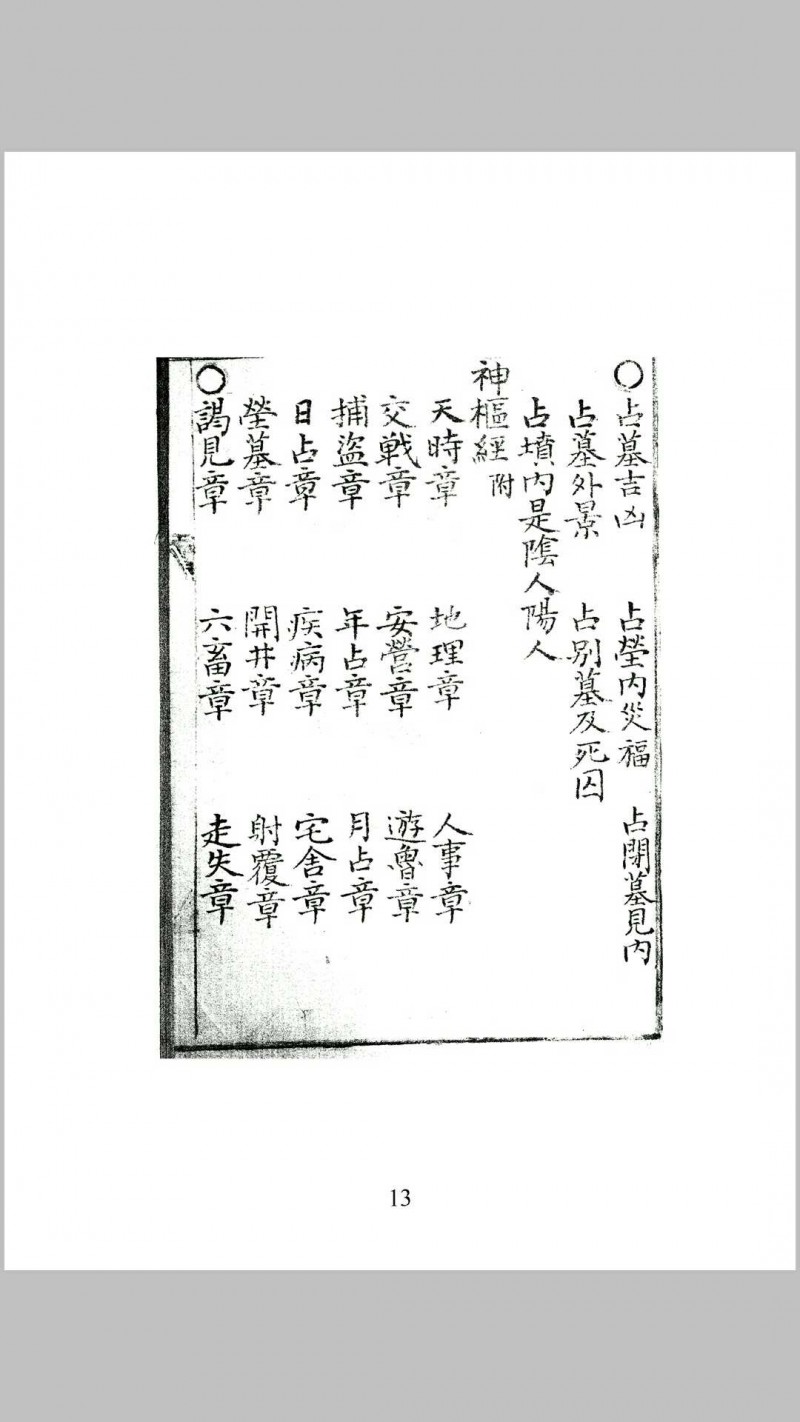 〇占墓吉凶 占塋內災福 占閉墓見內
占墓外景 占別墓及死囚
占墳內是陰人陽人
神樞經附
天時章 地理章 人事章
交戰章 安營章 遊魯章
捕盜章 年占章 月占章
日占章 疾病章 宅舍章
塋墓章 開井章 射覆章
〇謁見章 六畜章 走失章
13